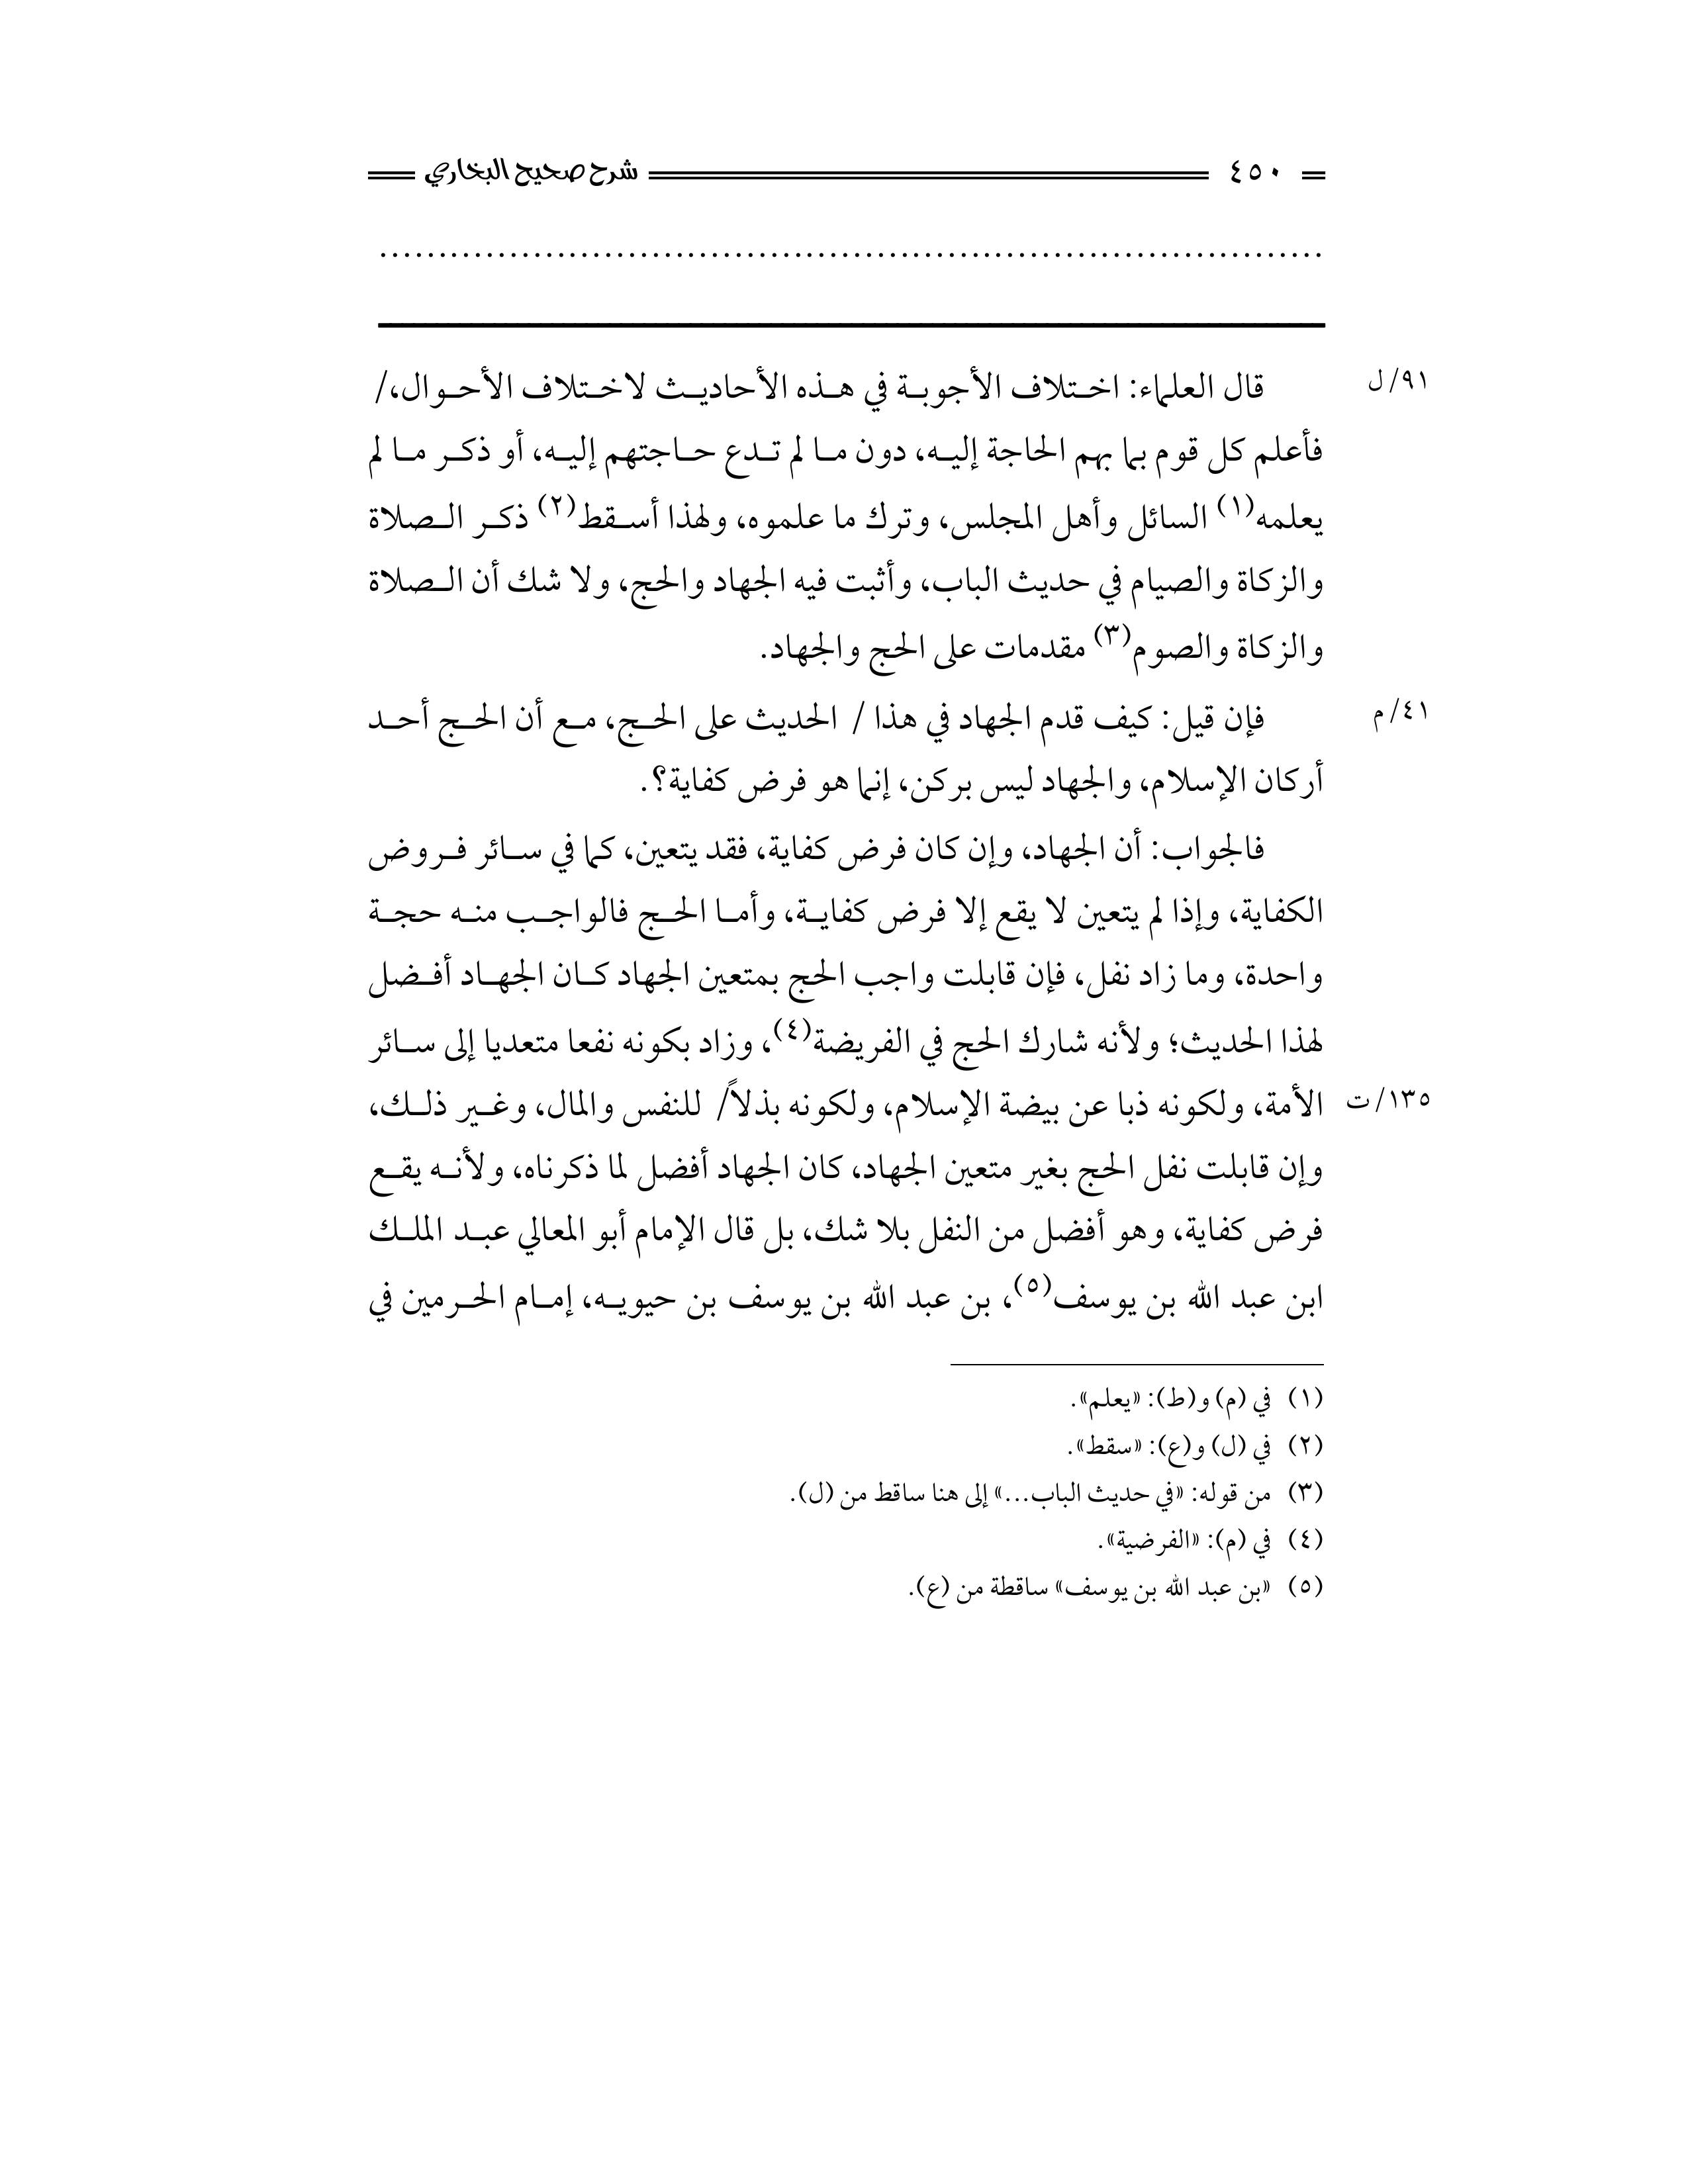 ٤٥٠ شرح صحيح البخاري
................................................................................
٩١/ ل
قال العلماء: اختلاف الأجوبة في هذه الأحاديث لاختلاف الأحوال،/
فأعلم كل قوم بما بهم الحاجة إليه، دون ما لم تدع حاجتهم إليه، أو ذكر ما لم
يعلمه(١) السائل وأهل المجلس، وترك ما علموه، ولهذا أسقط(٢) ذكر الصلاة
والزكاة والصيام في حديث الباب، وأثبت فيه الجهاد والحج، ولا شك أن الصلاة
والزكاة والصوم(٣) مقدمات على الحج والجهاد.
٤١/ م
فإن قيل: كيف قدم الجهاد في هذا / الحديث على الحج، مع أن الحج أحد
أركان الإسلام، والجهاد ليس بركن، إنما هو فرض كفاية؟.
فالجواب: أن الجهاد، وإن كان فرض كفاية، فقد يتعين، كما في سائر فروض
الكفاية، وإذا لم يتعين لا يقع إلا فرض كفاية، وأما الحج فالواجب منه حجة
واحدة، وما زاد نفل، فإن قابلت واجب الحج بمتعين الجهاد كان الجهاد أفضل
لهذا الحديث؛ ولأنه شارك الحج في الفريضة(٤)، وزاد بكونه نفعا متعديا إلى سائر
١٣٥/ ت
الأمة، ولكونه ذبا عن بيضة الإسلام، ولكونه بذلاً/ للنفس والمال، وغير ذلك،
وإن قابلت نفل الحج بغير متعين الجهاد، كان الجهاد أفضل لما ذكرناه، ولأنه يقع
فرض كفاية، وهو أفضل من النفل بلا شك، بل قال الإمام أبو المعالي عبد الملك
ابن عبد الله بن يوسف(٥)، بن عبد الله بن يوسف بن حيويه، إمام الحرمين في
(١) في (م) و(ط): «يعلم».
(٢) في (ل) و(ع): «سقط».
(٣) من قوله: «في حديث الباب...» إلى هنا ساقط من (ل).
(٤) في (م): «الفرضية».
(٥) «بن عبد الله بن يوسف» ساقطة من (ع).